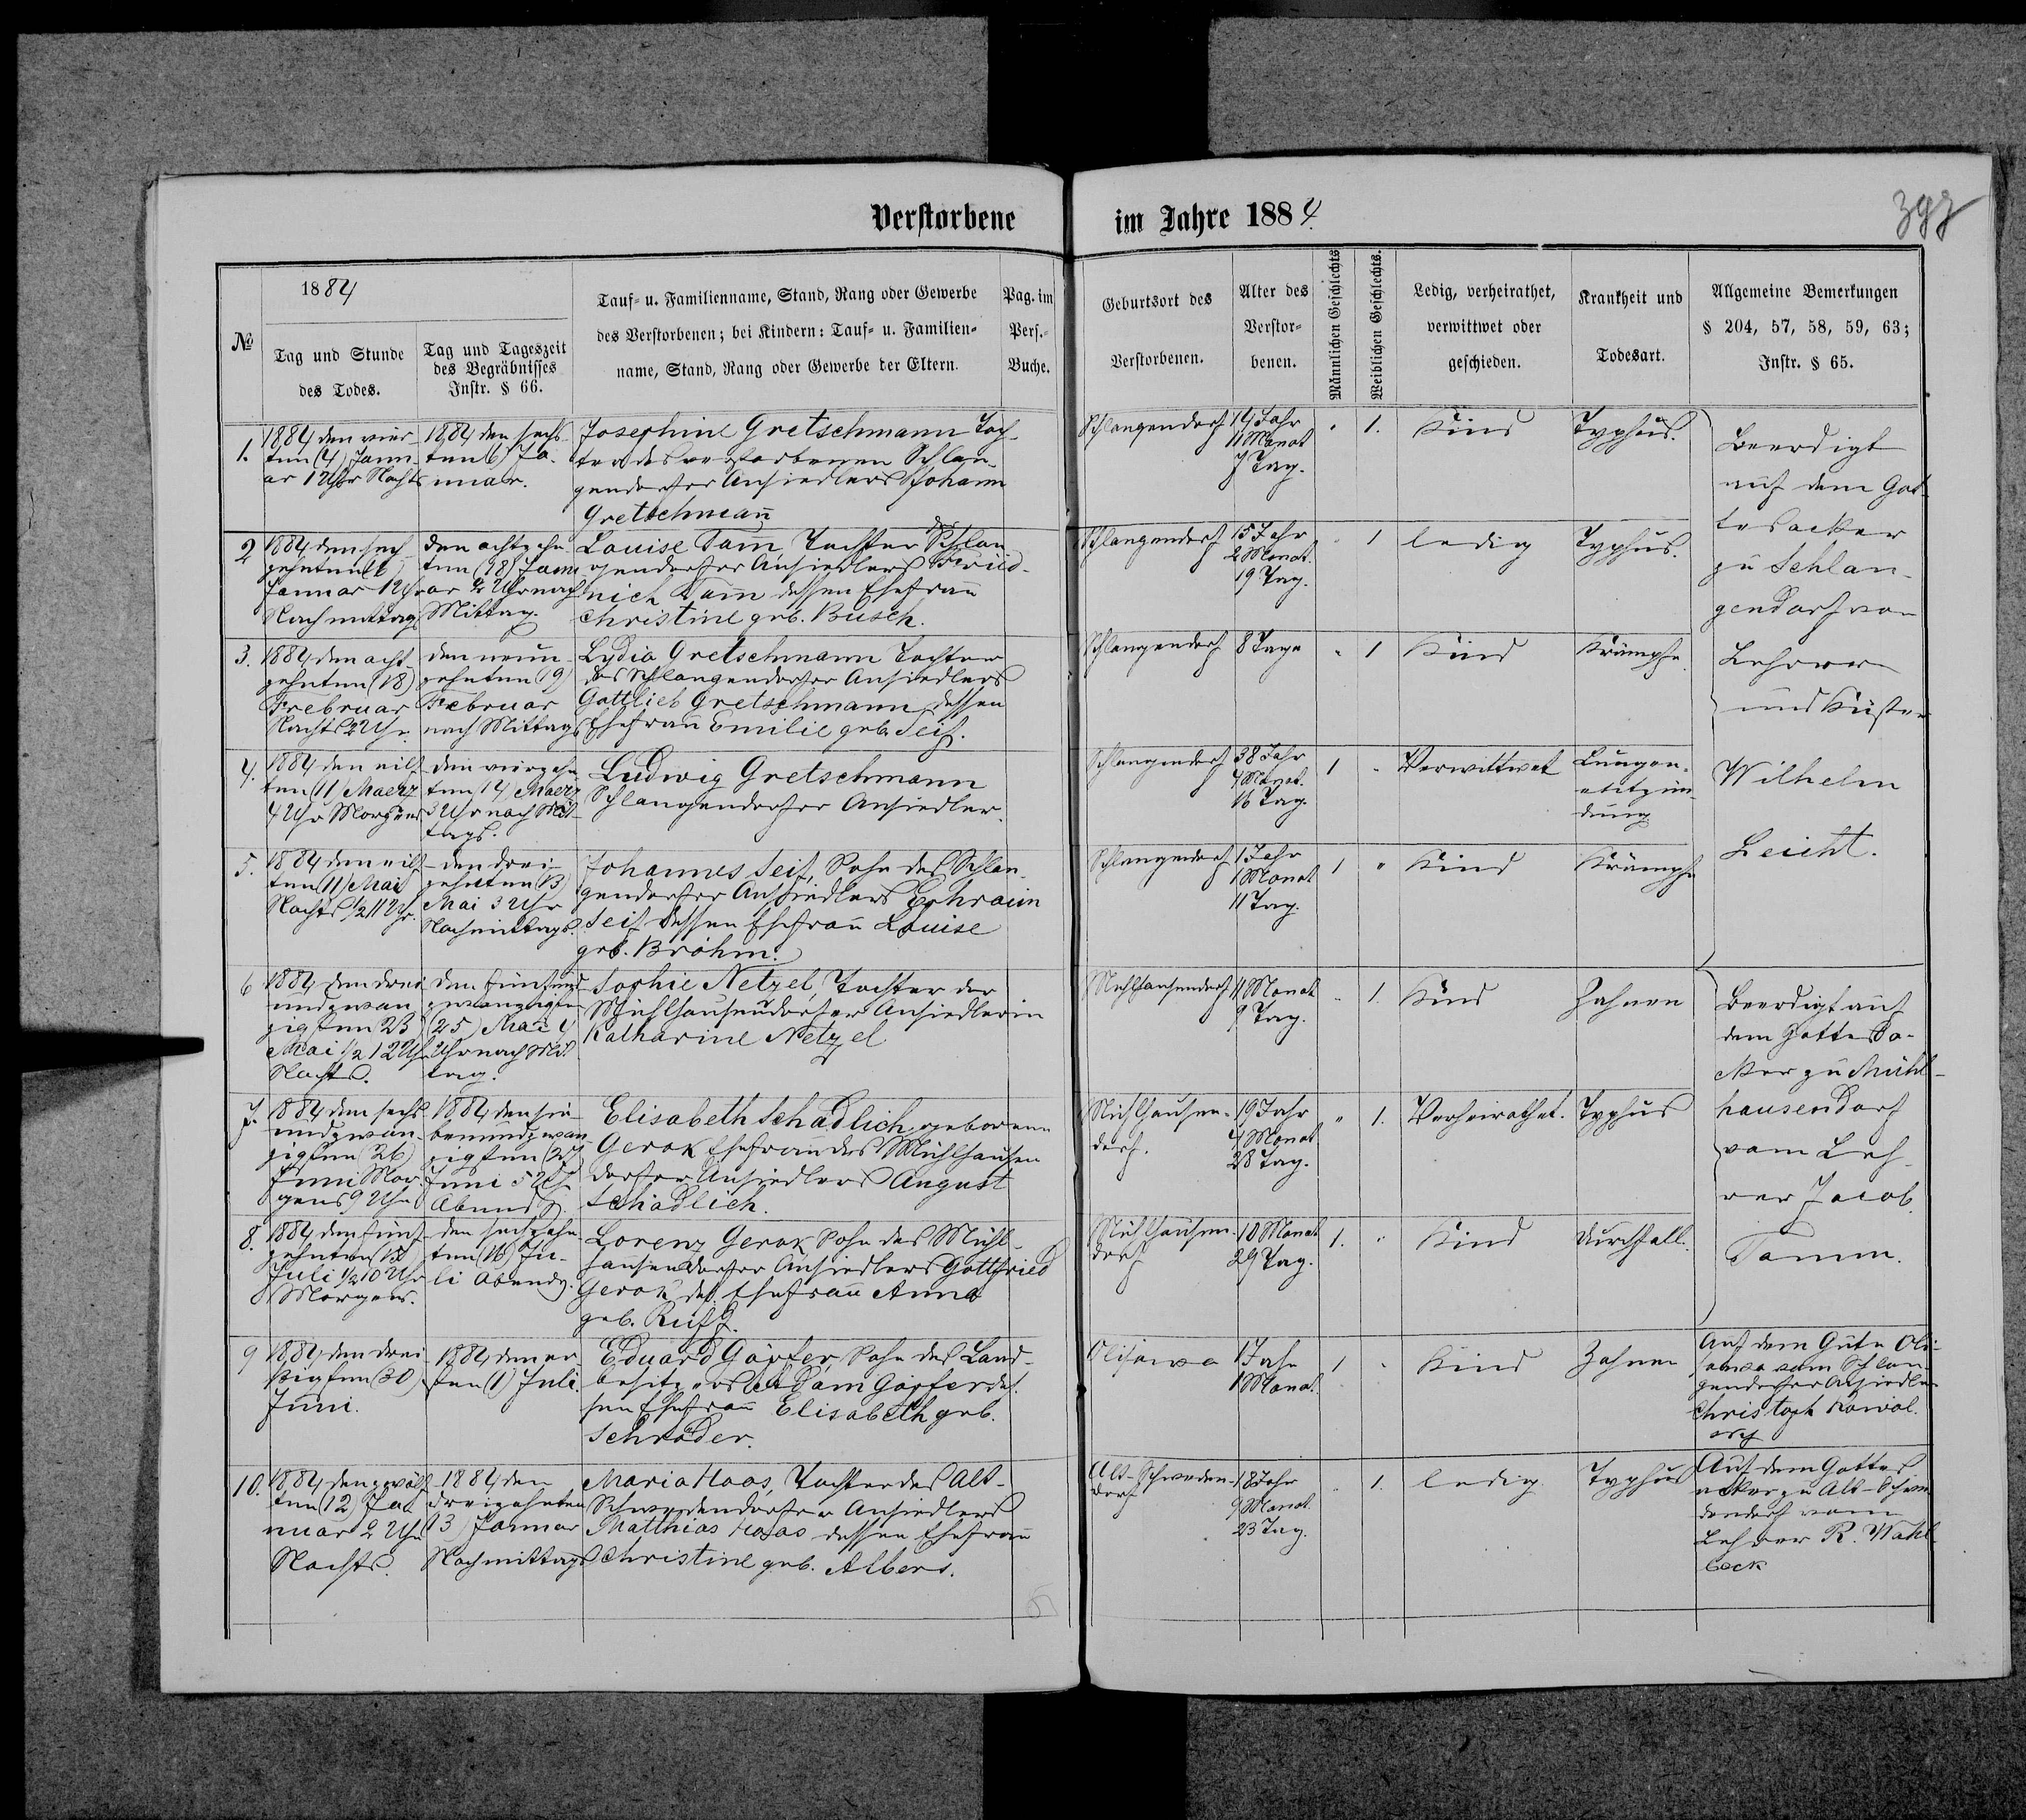 Verstorbene im Jahre 1884.
393
№
1884
Tag und Stunde
des Todes.
Tag und Tageszeit
des Begräbnisses
Instr. § 66.
Tauf- u. Familienname, Stand, Rang oder Gewerbe
des Verstorbenen; bei Kindern: Tauf- u. Familien-
name, Stand, Rang oder Gewerbe der Eltern.
Pag. im
Pers.-
Buche.
Geburtsort des
Verstorbenen.
Alter des
Verstor-
benen.
Männlichen Geschlechts
Weiblichen Geschlechts.
Ledig, verheirathet,
verwittwet oder
geschieden.
Krankheit und
Todesart.
Allgemeine Bemerkungen
§ 204, 57, 58, 59, 63;
Instr. § 65.
1.
1884 den vier-
ten (4) Janu-
ar 1 Uhr Nachts
1884 den sechs-
ten (6) Ja-
nuar.
Josephine Gretschmann Toch-
ter des verstorbenen Schlan-
gendorfer Ansiedlers Johann
Gretschmann
Schlangendorf
14 Jahr
11 Monat
7 Tag.
"
1.
Kind
Typhus.
2
1884 den sech-
zehnten (16)
Januar 1 Uhr
Nachmittags
den achtzehn-
ten (18) Janu-
ar 2 Uhr nach
Mittag.
Louise Tamm, Tochter des Schlan-
gendorfer Ansiedlers Fried-
rich Tamm dessen Ehefrau
Christine geb. Busch.
Schlangendorf
15 Jahr
2 Monat.
19 Tag.
"
1
ledig
Typhus.
3.
1884 den acht-
zehnten (18)
Februar
Nachts 2 Uhr.
den neun-
zehnten (19)
Februar
nach Mittags
Lydia Gretschmann Tochter
des Schlangendorfer Ansiedlers
Gottlieb Gretschmann dessen
Ehefrau Emilie geb. Seif.
Schlangendorf
8 Tage
"
1
Kind
Krämpfe
4.
1884 den eilf-
ten (11) Maerz
4 Uhr Morgens
den vierzehn-
ten 14) Maerz
3 Uhr nach Mit-
tags.
Ludwig Gretschmann
Schlangendorfer Ansiedler.
Schlangendorf
38 Jahr
4 Monat.
16 Tag.
1
"
Verwittwet
Lungen-
entzün-
dung
5.
1884 den eilf-
ten (11) Mai
Nachts 1/2 11 Uhr.
den drei-
zehnten (13)
Mai 3 Uhr
Nachmittags.
Johannes Seif, Sohn des Schlan-
gendorfer Ansiedlers Ephraim
Seif dessen Ehefrau Louise
geb. Bröhm.
Schlangendorf
1 Jahr
1 Monat
11 Tag.
1
"
Kind
Krämpfe
Beerdigt
auf dem Got-
tesacker
zu Schlan-
gendorf von
Lehrer
und Küster
Wilhelm
Leicht.
6
1884 den drei
und zwan-
zigsten 23)
Mai 1/2 12 Uhr
Nachts.
den fünfund
zwanzigsten
(25) Mai 4
Uhr nach Mit
tag.
Sophie Netzel, Tochter der
Mühlhausendorfer Ansiedlerin
Katharine Netzel
Mühlhausendorf
11 Monat
9 Tag.
"
1.
Kind
Zahnen
7.
1884 den sechs
und zwan-
zigsten (26)
Juni Mor-
gens 9 Uhr
1884 den sie-
benundzwan-
zigsten (27)
Juni 5 Uhr
Abends.
Elisabeth Schädlich, geborene
Gerok Ehefrau des Mühlhausen
dorfer Ansiedlers August
Schädlich.
Mühlhausen-
dorf.
19 Jahr
4 Monat
28 Tag.
"
1.
Verheirathet.
Typhus
8.
1884 den fünf-
zehnten (15)
Juli 1/2 10 Uhr
Morgens.
den sechzehn-
ten (16) Ju-
li Abends.
Lorenz Gerok Sohn des Mühl-
hausendorfer Ansiedlers Gottfried
Gerok des. Ehefrau Anna
geb. Ruff.
Mühlhausen-
dorf
10 Monat
29 Tag.
1.
"
Kind
Durchfall.
Beerdigt auf
dem Gottesa-
cker zu Mühl-
hausendorf
vom Leh-
rer Jacob
Tamm.
9
1884 den drei
ßigsten (30)
Juni.
1884 den er-
sten (1) Juli.
Eduard Göpfer, Sohn des Land-
besitzers Adam Göpfer des-
sen Ehefrau Elisabeth geb.
Schröder.
Olijowa
1 Jahr
1 Monat.
1
"
Kind
Zahnen
Auf dem Gute Oli-
jowa vom Schlan-
gendorfer Ansiedler
Christoph
10.
1884 den zwölf-
ten (12) Ja-
nuar 2 Uhr
Nachts.
1884 den
dreizehnten
13) Januar
Nachmittags
Maria Haas, Tochter des Alt-
Schwedendorfer Ansiedlers
Matthias Haas dessen Ehefrau
Christine geb. Albers.
Alt-Schweden-
dorf
18 Jahr
9 Monat.
23 Tag.
"
1.
ledig.
Typhus
Auf dem Gottes
acker zu Alt-Schwe
dendorf vom
Lehrer R. Wahl
beck